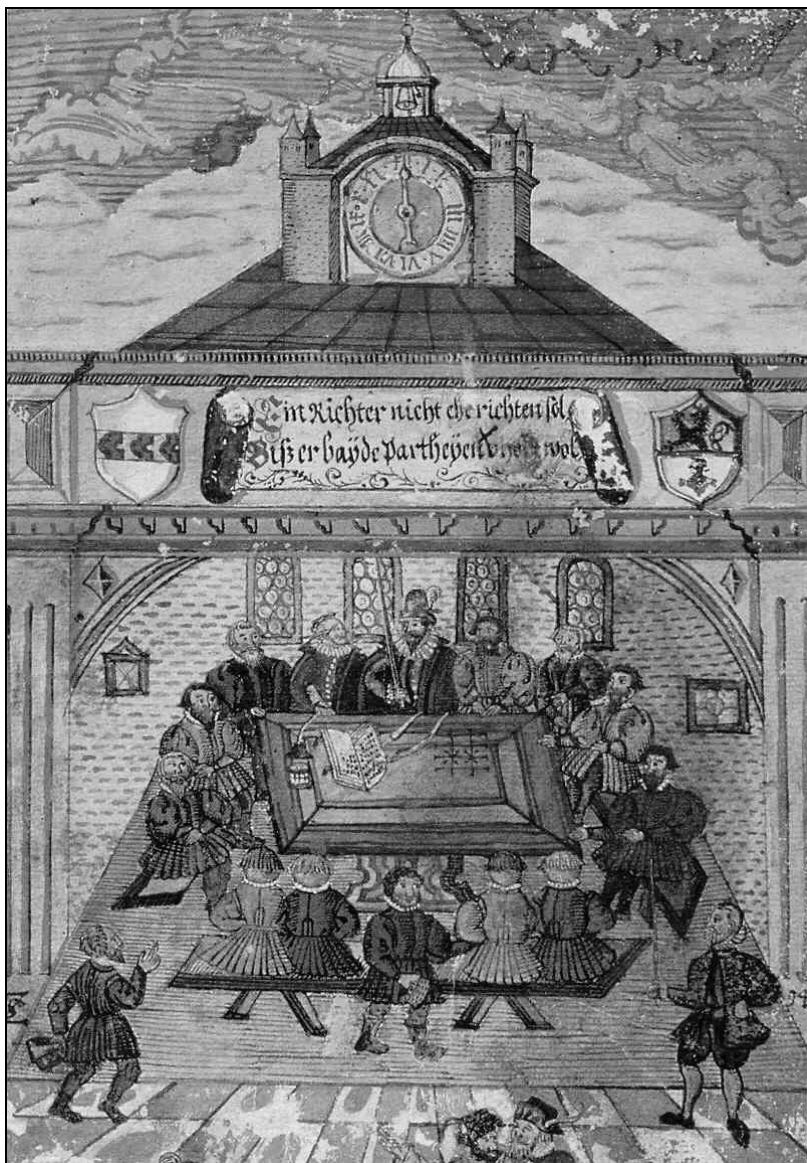 Ein Richter nicht ehe richten sol
Biß er baÿde Partheÿen wol